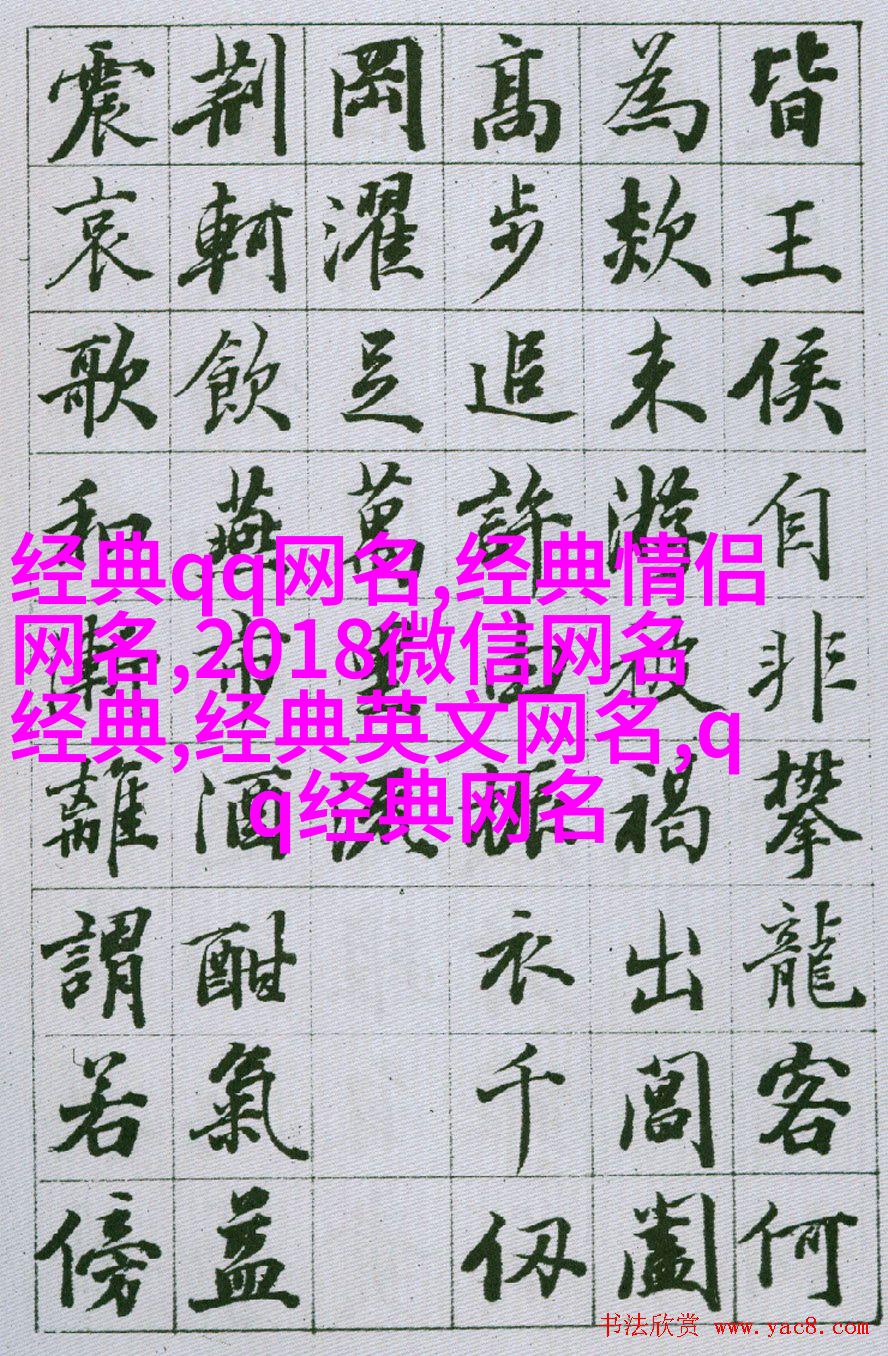 皆王侯自非攀龍客何
為欻来游被褐出閶闔
高步追許由振衣千仞
岡濯足萬里流
荆軻飲燕市酒酣氣益
震哀歌和漸離謂若傍
经典qq网名,经典情侣
网名,2018微信网名
经典,经典英文网名,q
q经典网名
书法欣赏 www.yac8.com